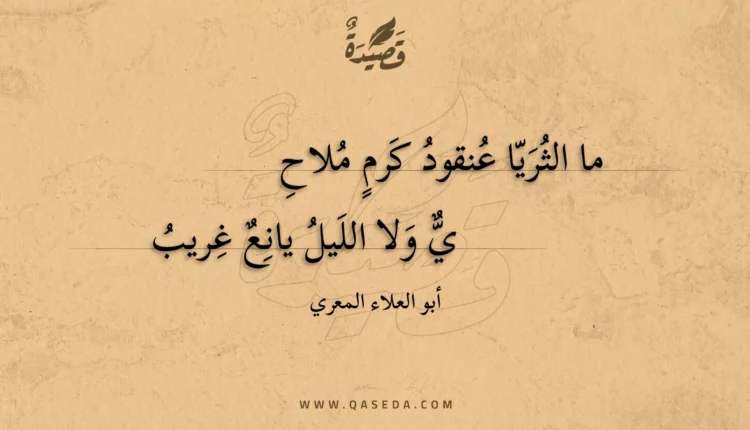 قَصِيدَةٌ
ما الثُرَيّا عُنقودُ كَرمٍ مُلاحِ
يٌّ وَلا اللَيلُ يانِعٌ غِربيبُ
أبو العلاء المعري
WWW.QASEDA.COM